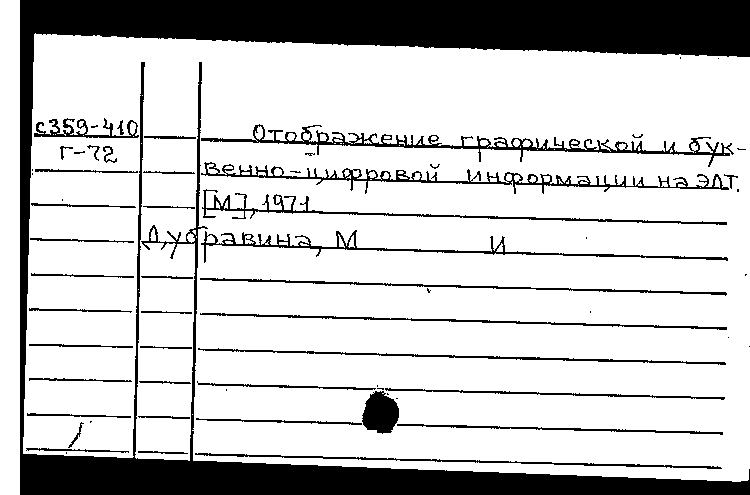 с359-410
Г-72
Отображение графической и бук-
венно-цифровой информации на ЭЛТ.
[М], 1971
Дубравина, М И